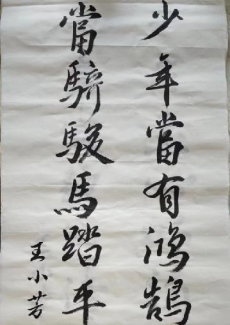 少年當有鴻鵠
當騎駿馬踏平
王小芳